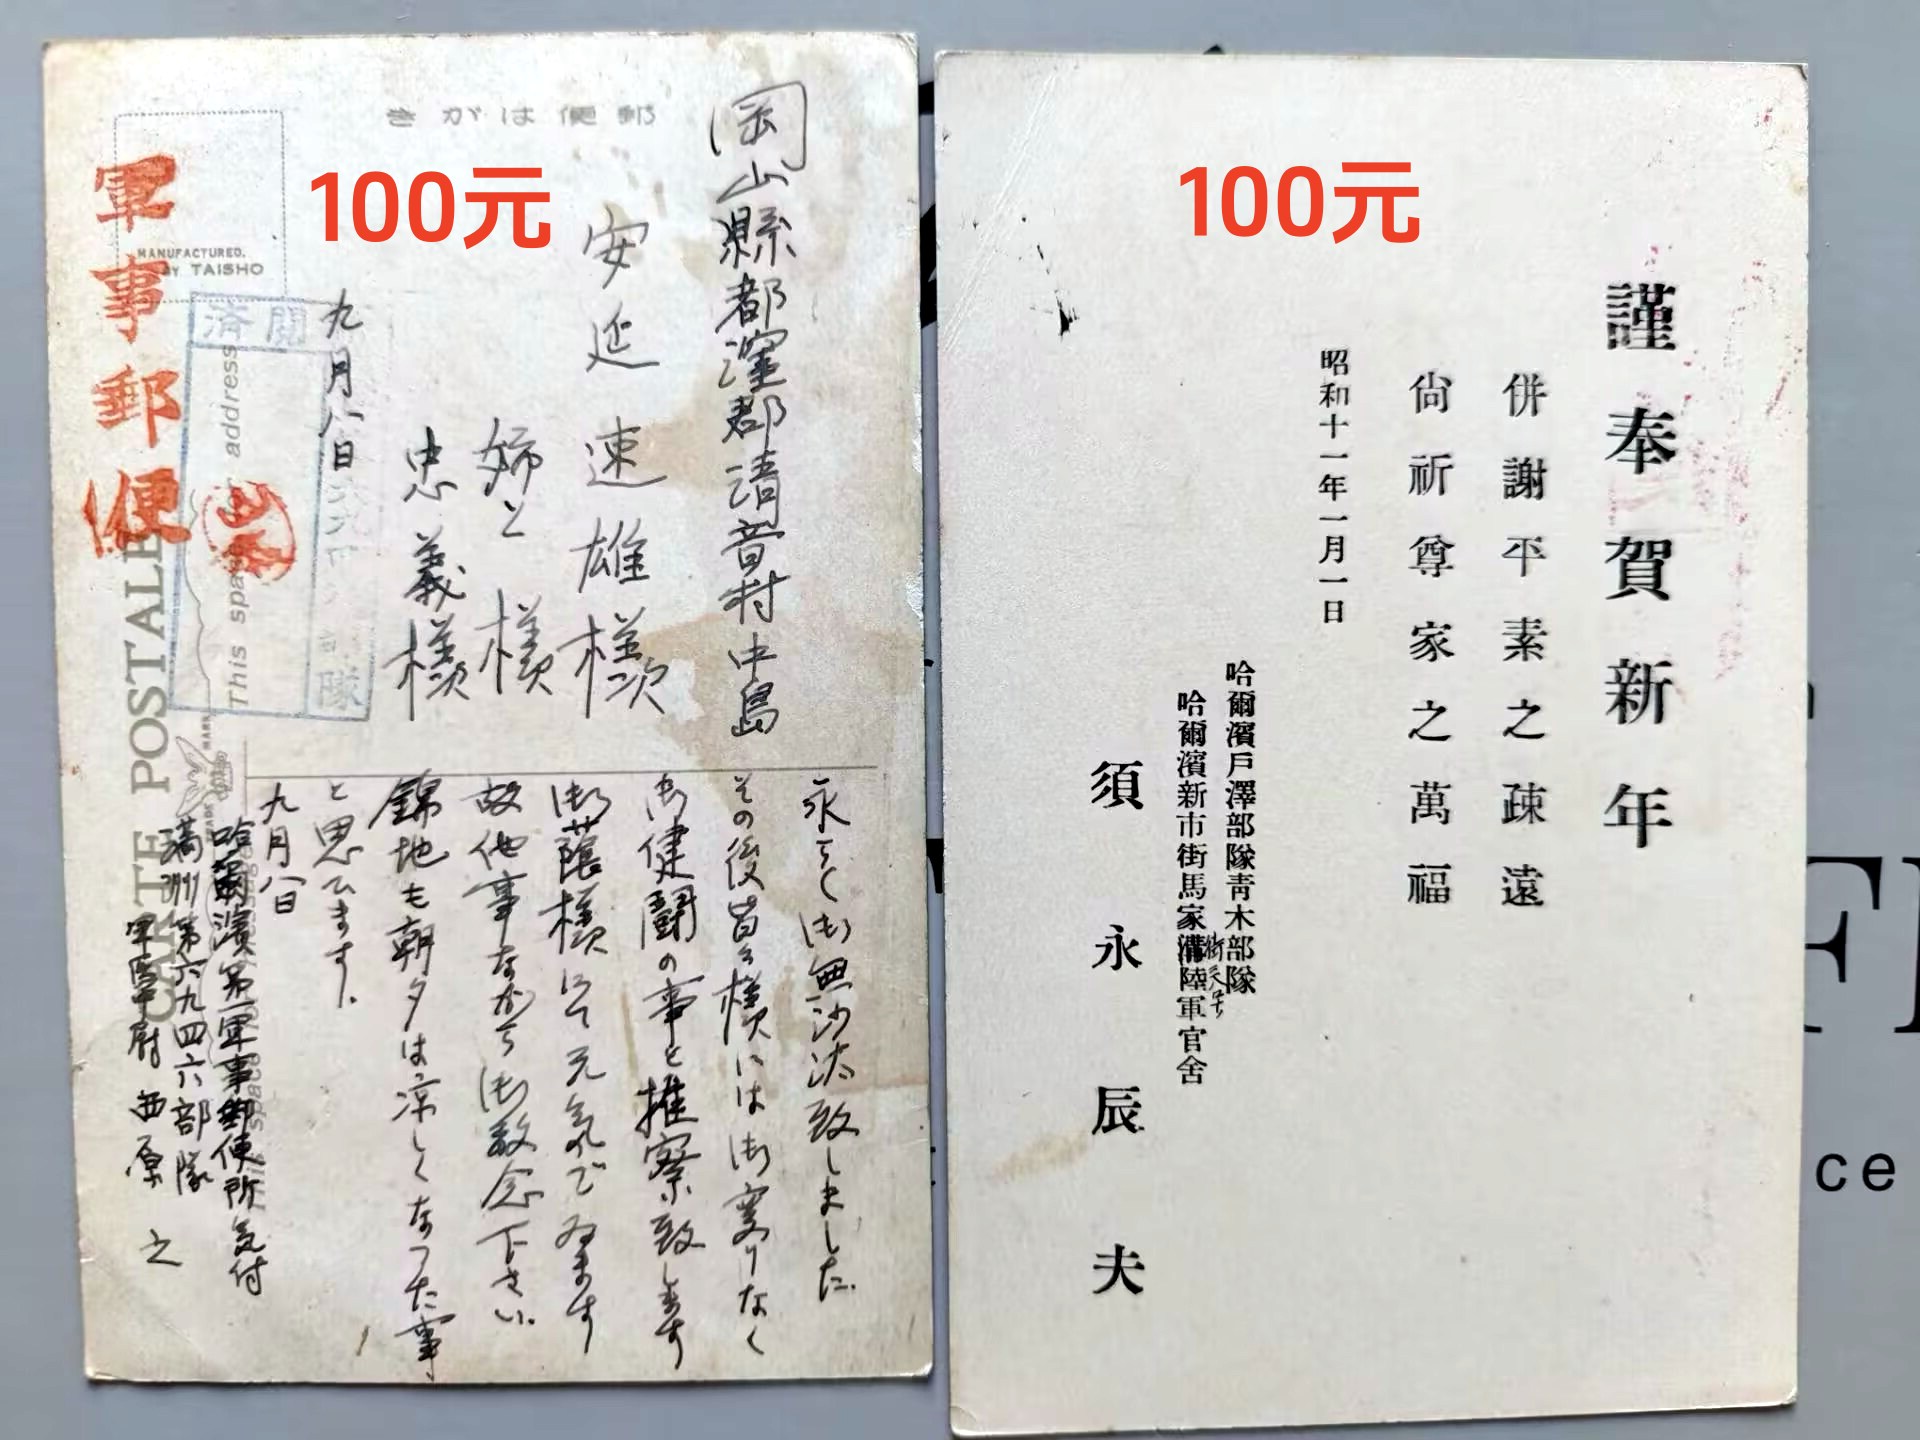 郵便はがき
100元
軍事郵便
MANUFACTURED.
BY TAISHO
閲済
山本
CARTE POSTALE
This space address
岡山縣都窪郡清音村中島
安延速雄様
姉上様
忠義様
九月八日
永らく御無沙汰致しました
その後皆々様には御変りなく
御健闘の事と推察致します
御蔭様にて元気で居ます
故他事ながら御放念下さい。
錦地も朝夕は涼しくなつた事
と思ひます。
九月八日
哈爾濱第一軍事郵便所気付
満洲第六九四六部隊
軍医中尉 西原
100元
謹奉賀新年
併謝平素之疎遠
尙祈尊家之萬福
昭和十一年一月一日
哈爾濱戶澤部隊靑木部隊
哈爾濱新市街馬家溝陸軍官舍
須永辰夫
ce